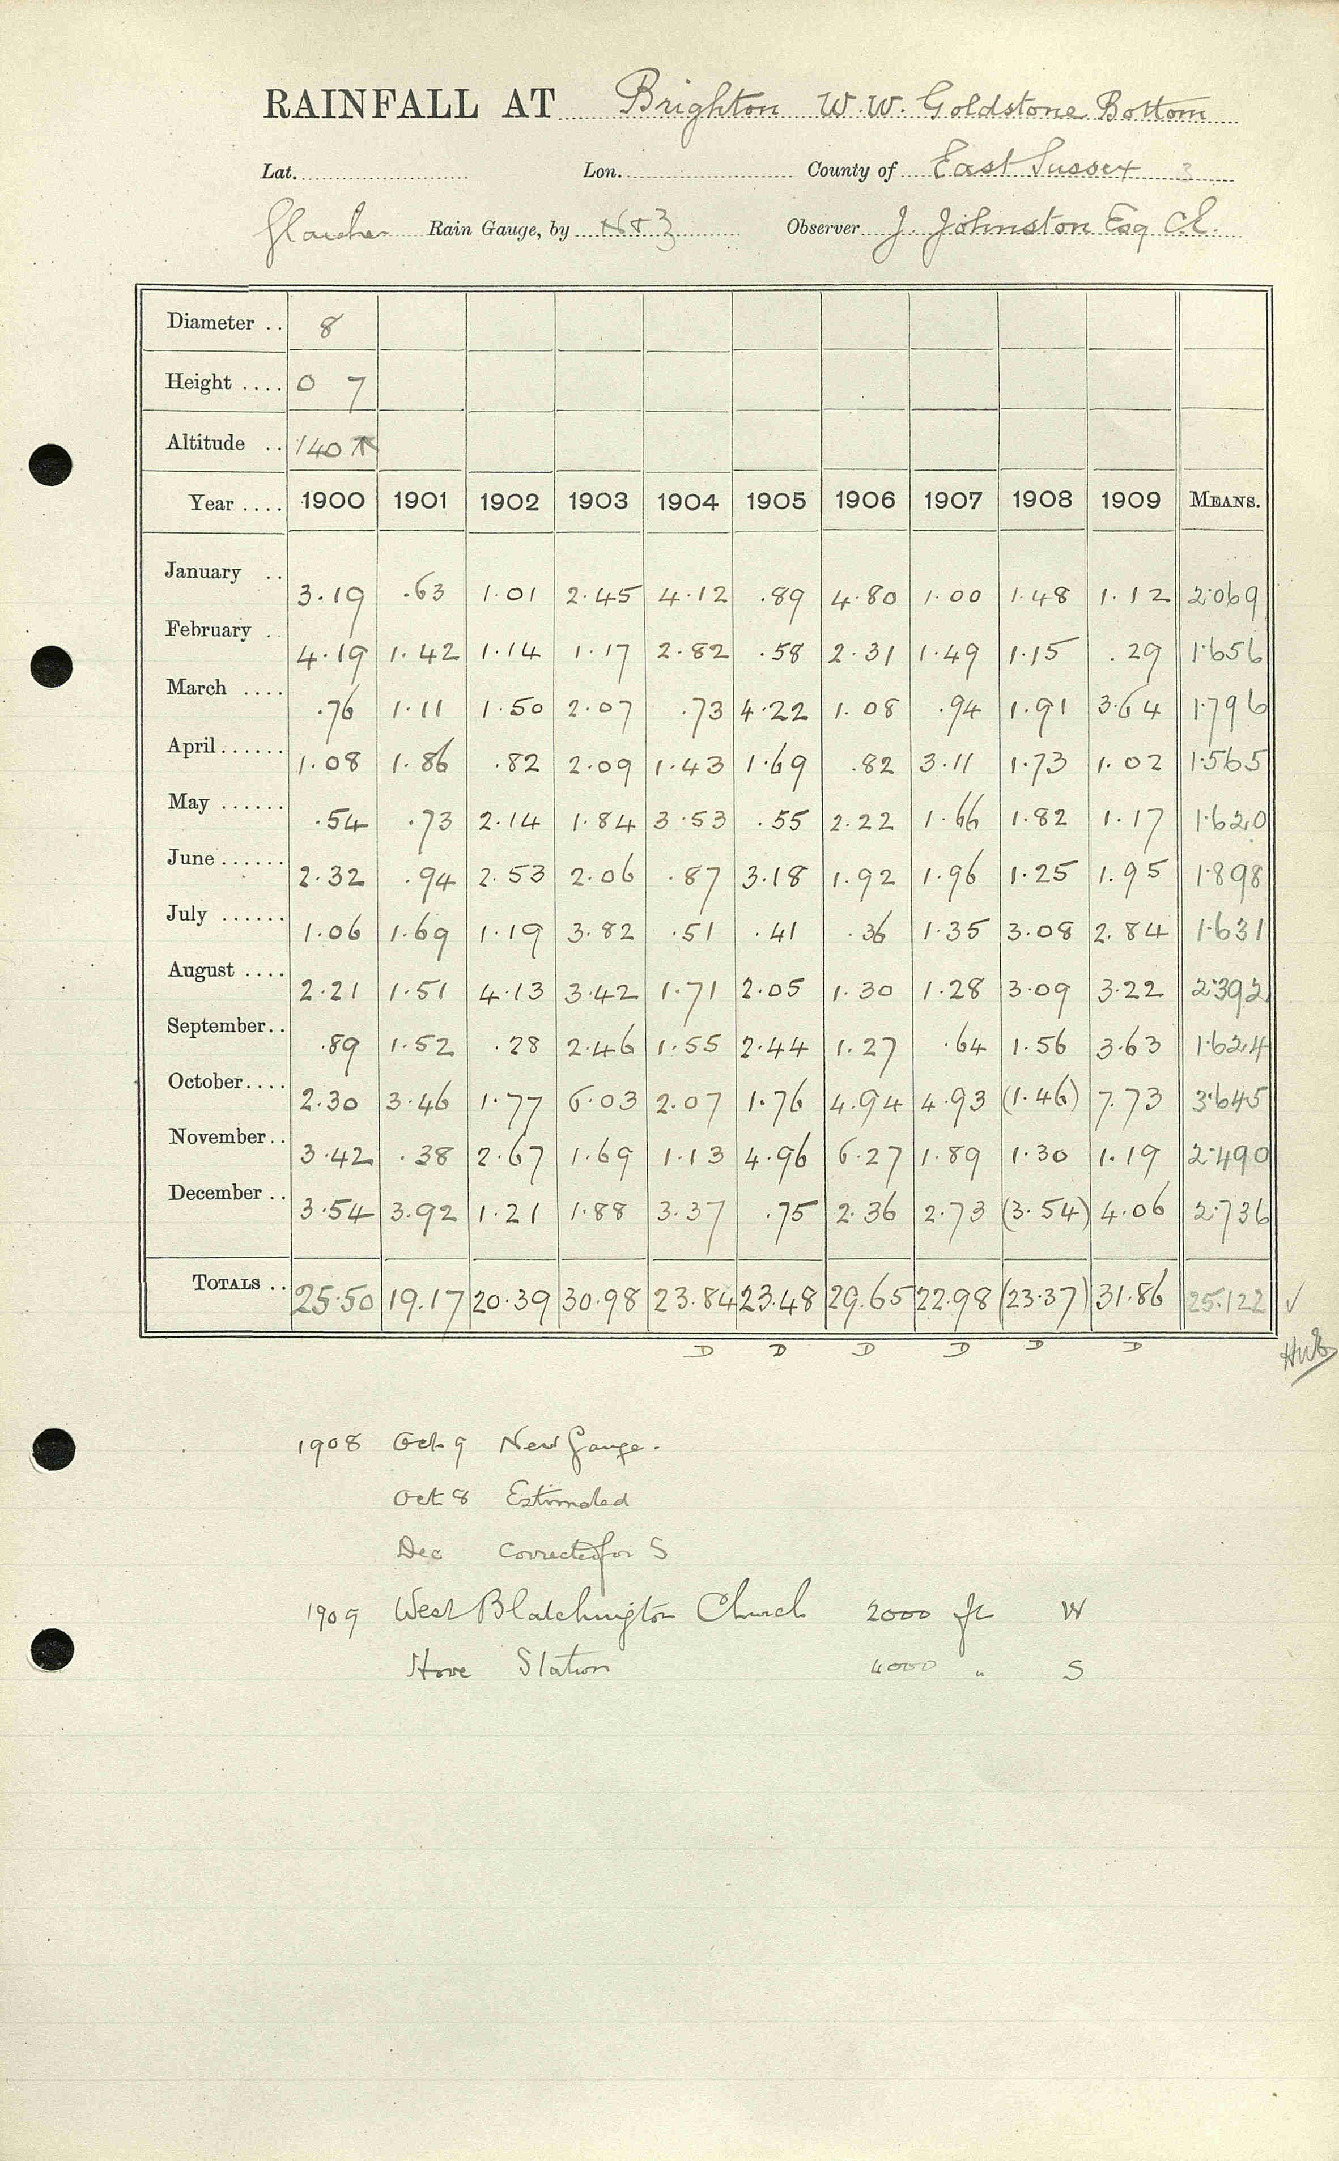 RAINFALL AT Brighton W.W. Goldstone Bottom
Lat. Lon. County of East Sussex 3
Glaisher Rain Gauge, by N & Z Observer J. Johnston Esq C.E.
Diameter .. 8
Height .... 0 7
Altitude .. 140
Year .... 1900 1901 1902 1903 1904 1905 1906 1907 1908 1909 MEANS.
January .. 3.19 .63 1.01 2.45 4.12 .89 4.80 1.00 1.48 1.12 2.069
February .. 4.19 1.42 1.14 1.17 2.82 .58 2.31 1.49 1.15 .29 1.656
March .... .76 1.11 1.50 2.07 .73 4.22 1.08 .94 1.91 3.64 1.796
April ...... 1.08 1.86 .82 2.09 1.43 1.69 .82 3.11 1.73 1.02 1.565
May ...... .54 .73 2.14 1.84 3.53 .55 2.22 1.66 1.82 1.17 1.620
June ...... 2.32 .94 2.53 2.06 .87 3.18 1.92 1.96 1.25 1.95 1.898
July ...... 1.06 1.69 1.19 3.82 .51 .41 .36 1.35 3.08 2.84 1.631
August .... 2.21 1.51 4.13 3.42 1.71 2.05 1.30 1.28 3.09 3.22 2.392
September.. .89 1.52 .28 2.46 1.55 2.44 1.27 .64 1.56 3.63 1.624
October.... 2.30 3.46 1.77 6.03 2.07 1.76 4.94 4.93 (1.46) 7.73 3.645
November.. 3.42 .38 2.67 1.69 1.13 4.96 6.27 1.89 1.30 1.19 2.490
December .. 3.54 3.92 1.21 1.88 3.37 .75 2.36 2.73 (3.54) 4.06 2.736
TOTALS .. 25.50 19.17 20.39 30.98 23.84 23.48 29.65 22.98 (23.37) 31.86 25.122 ✓
D D D D D D
1908 Oct 9 New Gauge.
Oct 8 Estimated
Dec Corrected for S
1909 West Blatchington Church 2000 ft W
Hove Station 4000 " S